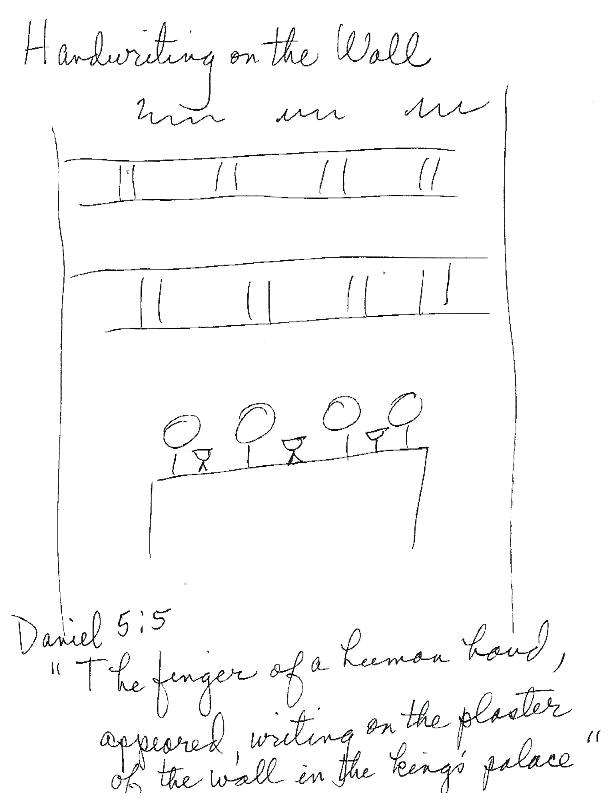 Handwriting on the Wall
Daniel 5:5
"The finger of a human hand,
appeared, writing on the plaster
of the wall in the king's palace"